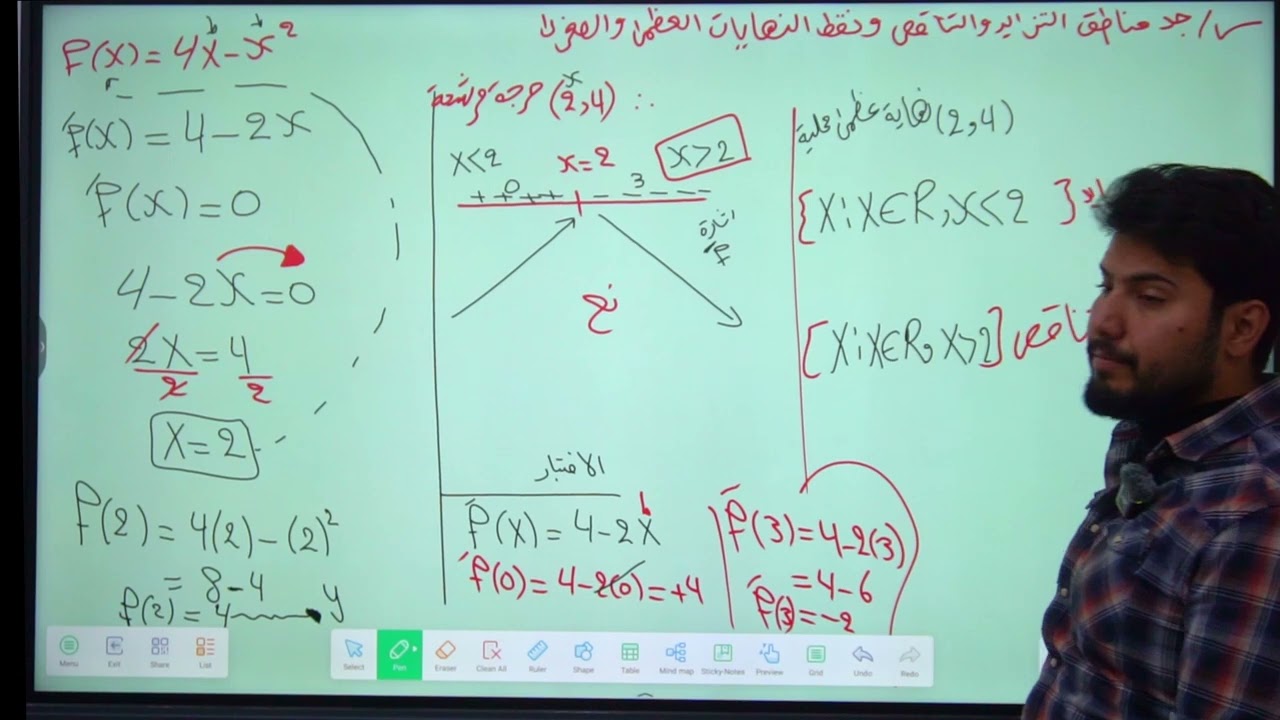 س/ جد مناطق التزايد والتناقص ونقط النهايات العظمى والصغرى
f(x) = 4x - x²
f́(x) = 4 - 2x
f́(x) = 0
4 - 2x = 0
2x = 4
2 2
x = 2
f(2) = 4(2) - (2)²
= 8 - 4
f(2) = 4 y
∴ (2,4) حرجة
x
x<2 x=2 x>2
+ + 0 + + - - 3 - - -
اشارة
f́
الاختبار
f́(x) = 4 - 2x
f́(0) = 4 - 2(0) = +4
f́(3) = 4 - 2(3)
= 4 - 6
f́(3) = -2
(2,4) نهاية عظمى محلية
{x : x∈R, x<2}
{x : x∈R, x>2}
Menu Exit Share List
Select Pen Eraser Clean All Ruler Shape Table Mind map Sticky-Notes Preview Grid Undo Redo